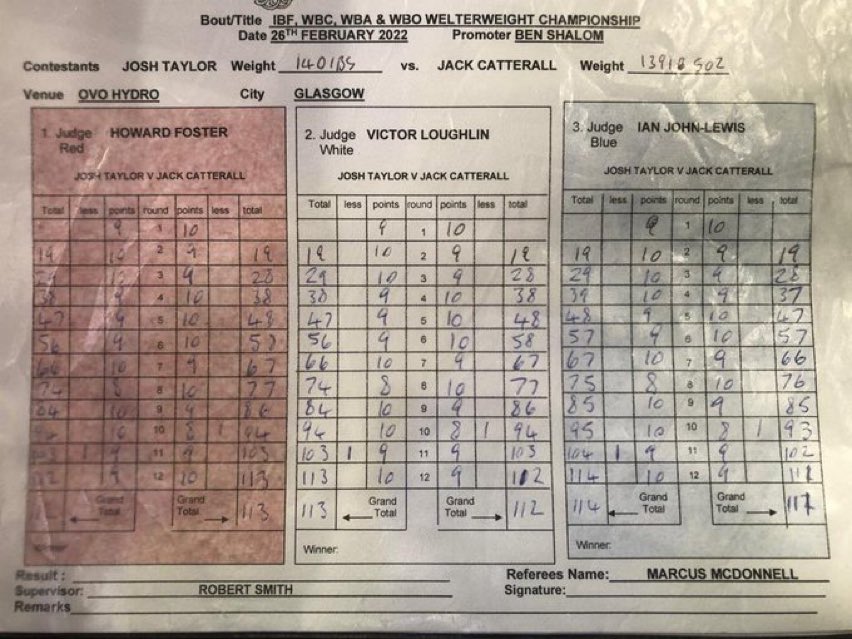 Bout/Title IBF, WBC, WBA & WBO WELTERWEIGHT CHAMPIONSHIP
Date 26TH FEBRUARY 2022 Promoter BEN SHALOM
Contestants JOSH TAYLOR Weight 140lbs vs. JACK CATTERALL Weight 139lb 5oz
Venue OVO HYDRO City GLASGOW
1. Judge HOWARD FOSTER
Red
JOSH TAYLOR V JACK CATTERALL
Total less points round points less total
9 1 10
19 10 2 9 19
29 10 3 9 28
38 9 4 10 38
47 9 5 10 48
56 9 6 10 58
66 10 7 9 67
74 8 8 10 77
84 10 9 9 86
94 10 10 8 1 94
103 1 9 11 9 103
112 9 12 10 113
Grand Total Grand Total 113
Winner
2. Judge VICTOR LOUGHLIN
White
JOSH TAYLOR V JACK CATTERALL
Total less points round points less total
9 1 10
19 10 2 9 19
29 10 3 9 28
38 9 4 10 38
47 9 5 10 48
56 9 6 10 58
66 10 7 9 67
74 8 8 10 77
84 10 9 9 86
94 10 10 8 1 94
103 1 9 11 9 103
113 10 12 9 112
113 Grand Total Grand Total 112
Winner:
3. Judge IAN JOHN-LEWIS
Blue
JOSH TAYLOR V JACK CATTERALL
Total less points round points less total
9 1 10
19 10 2 9 19
29 10 3 9 28
39 10 4 9 37
48 9 5 10 47
57 9 6 10 57
67 10 7 9 66
75 8 8 10 76
85 10 9 9 85
95 10 10 8 1 93
104 1 9 11 9 102
114 10 12 9 111
114 Grand Total Grand Total 111
Winner:
Result :
Supervisor: ROBERT SMITH
Remarks
Referees Name: MARCUS MCDONNELL
Signature: